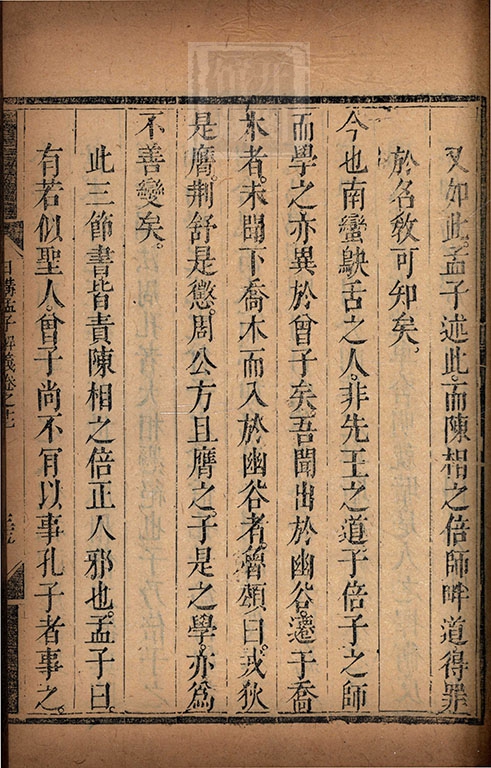 又如此孟子述此而陳相之倍師畔道得罪
於名教可知矣
今也南蠻鴃舌之人非先王之道子倍子之師
而學之亦異於曾子矣吾聞出於幽谷遷于喬
木者未聞下喬木而入於幽谷者魯頌曰戎狄
是膺荆舒是懲周公方且膺之子是之學亦爲
不善變矣
此三節書皆責陳相之倍正入邪也孟子曰
有若似聖人曾子尚不肯以事孔子者事之
日講孟子解義卷之七